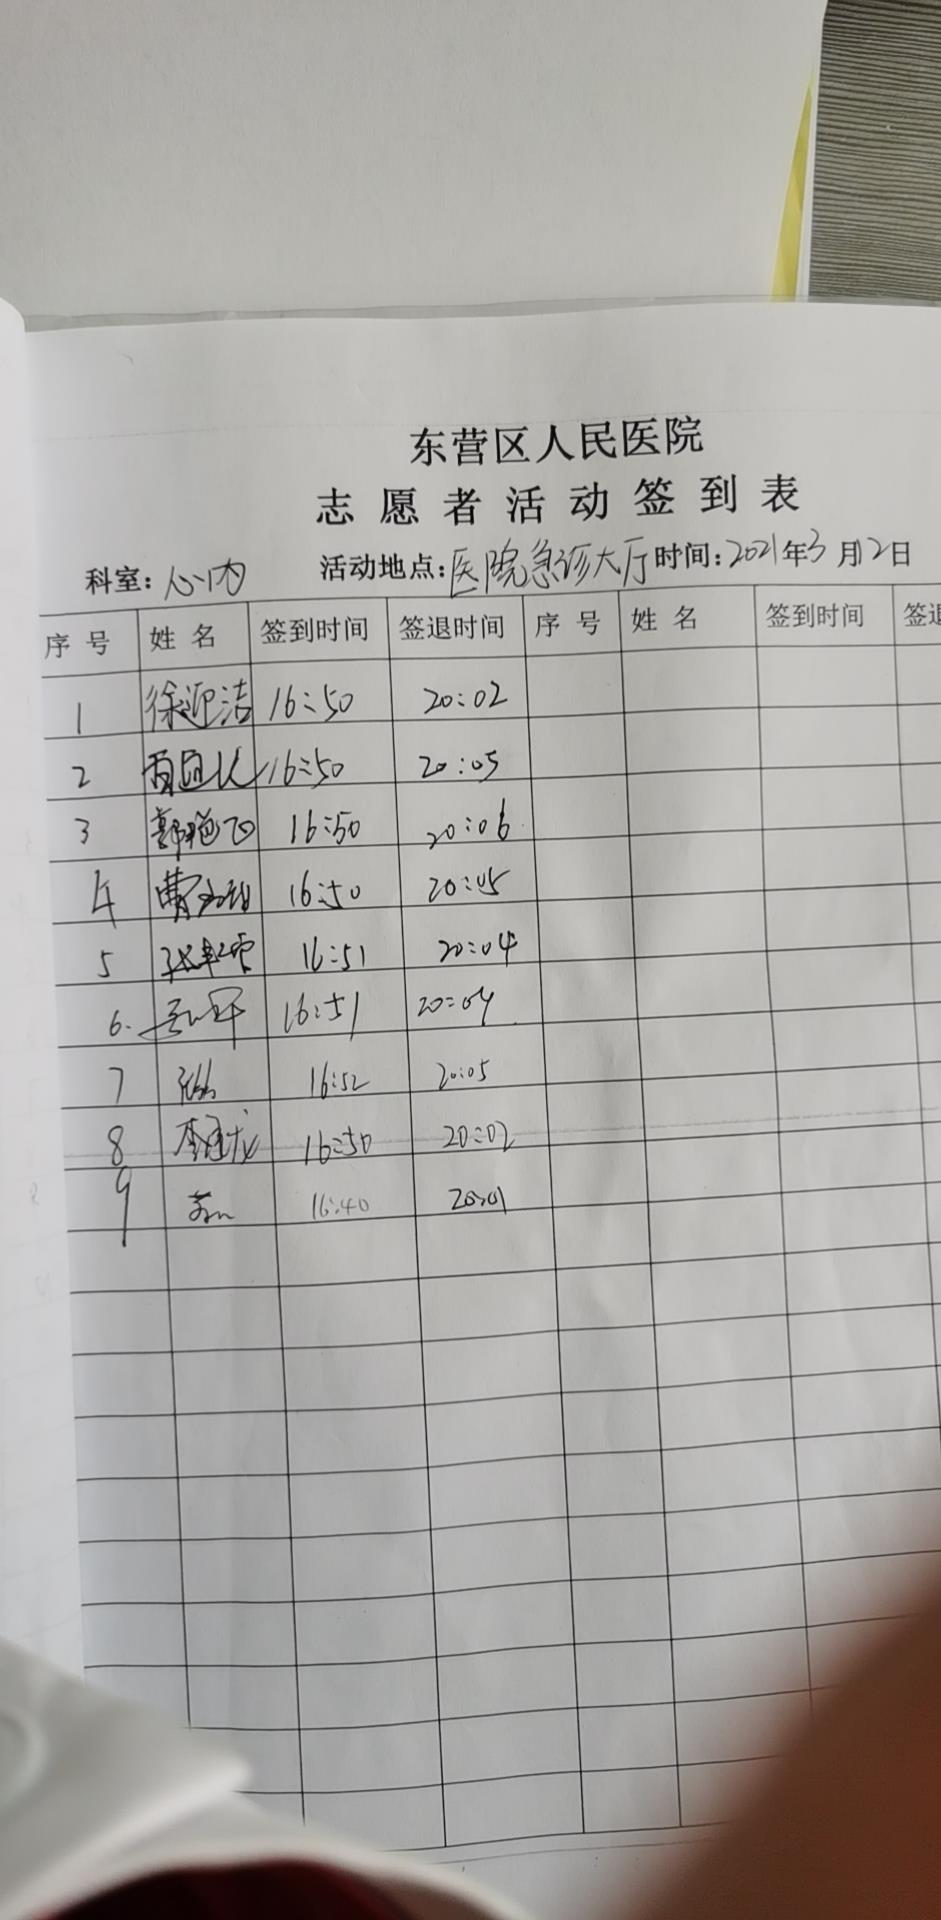 东营区人民医院
志愿者活动签到表
科室：心内 活动地点：医院急诊大厅 时间：2021年3月12日
序号 姓名 签到时间 签退时间 序号 姓名 签到时间 签退
1 徐迎洁 16:50 20:02
2 16:50 20:05
3 郭艳 16:50 20:06
4 曹 16:50 20:05
5 张 16:51 20:04
6. 16:51 20:04
7 16:52 20:05
8 李 龙 16:50 20:02
9 16:40 20:01